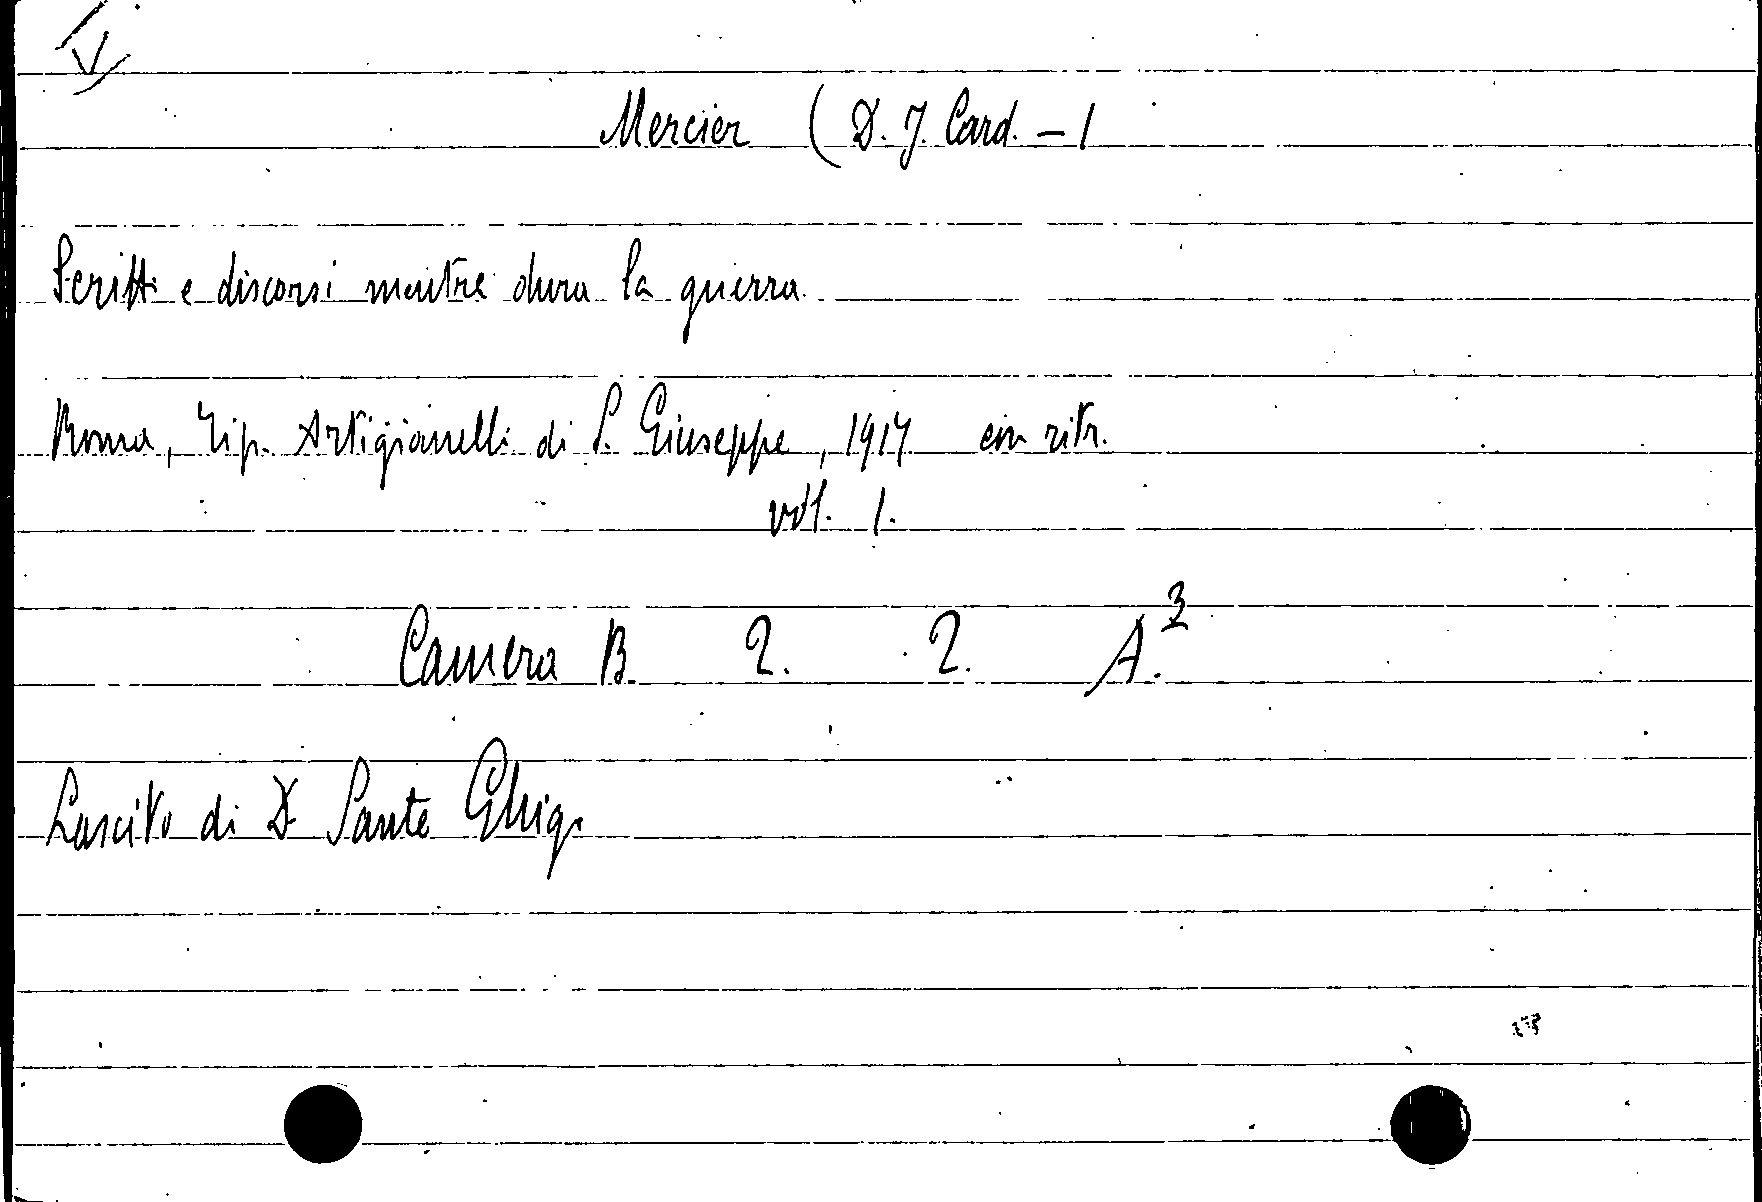 V
Mercier (D. J. Card. - )
Scritti e discorsi mentre dura la guerra.
Roma, Tip. Artigianelli di S. Giuseppe, 1917 con ritr.
vol. 1.
Camera B. 2. 2. A.3
Lascito di D. Sante Ghig.